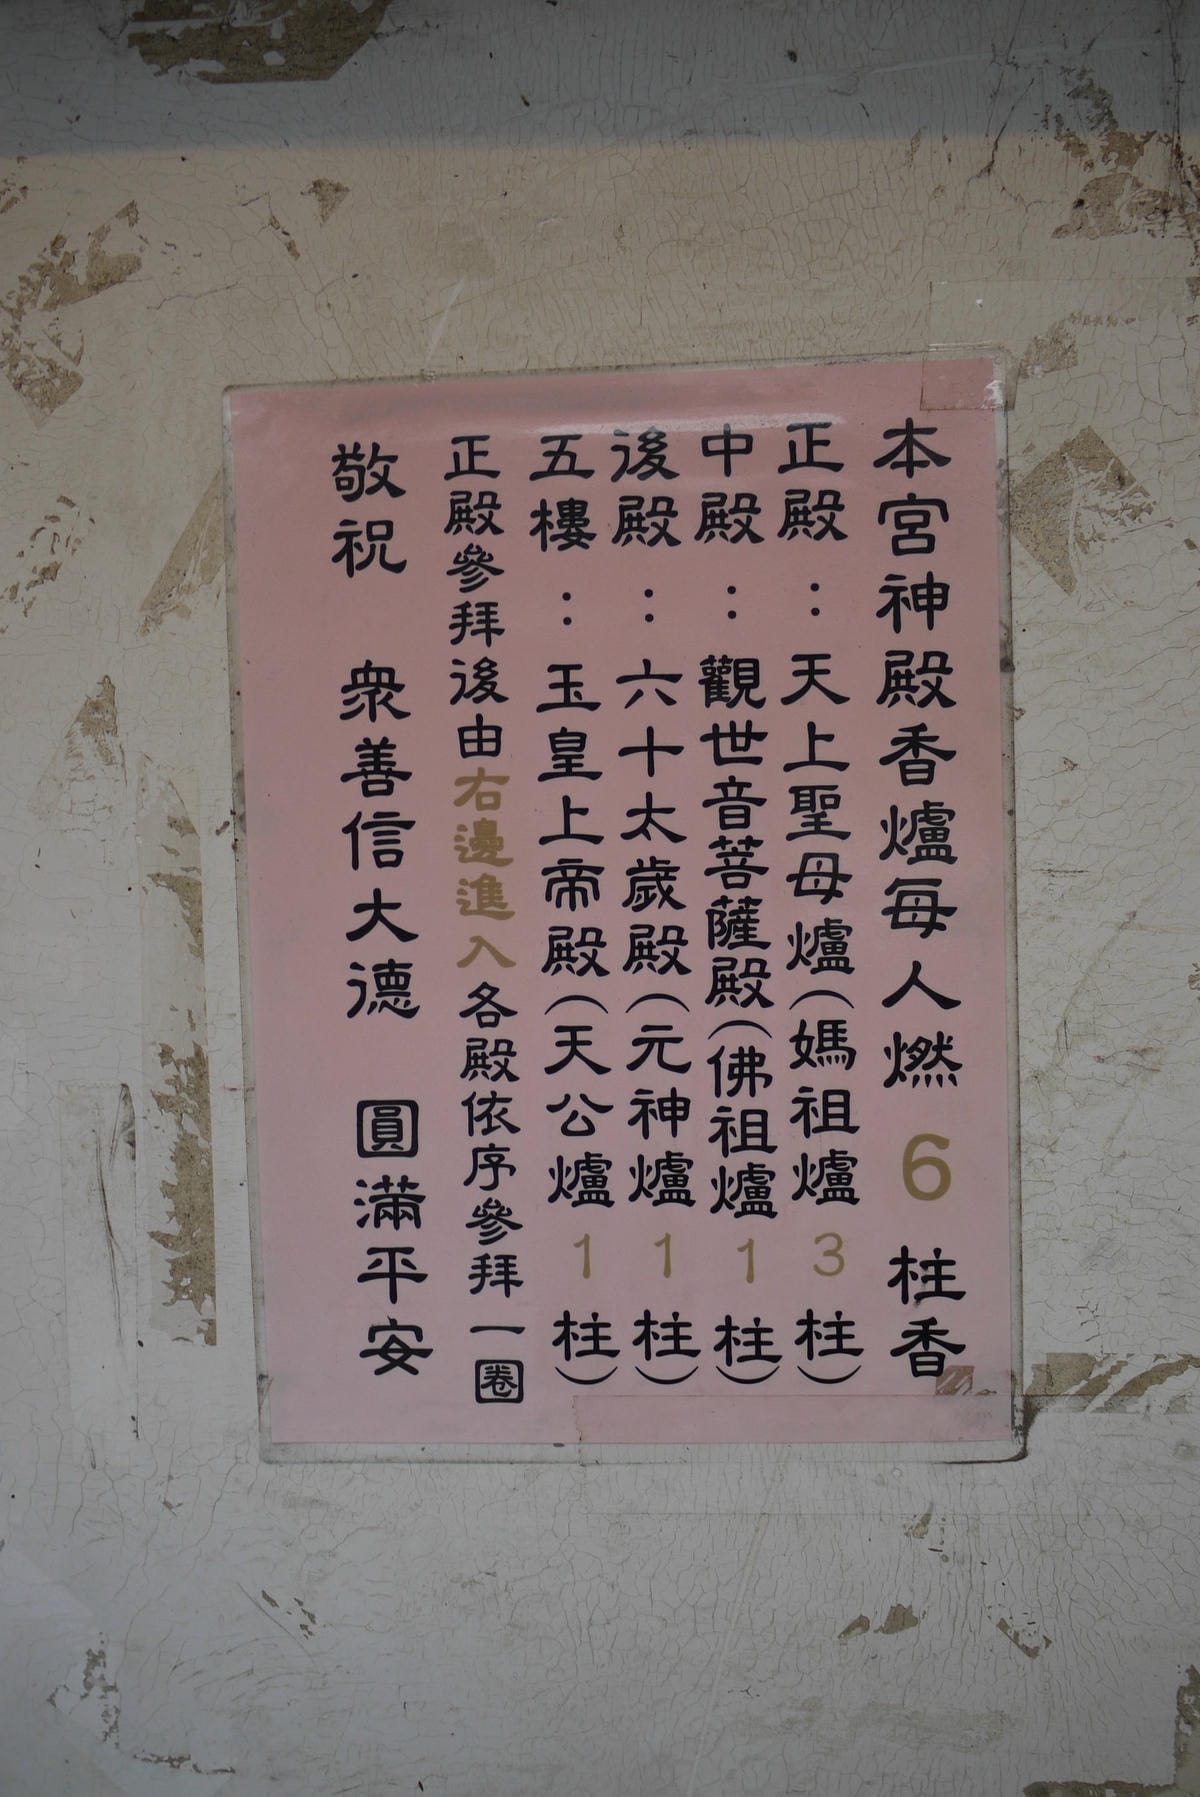 本宮神殿香爐每人燃 6 柱香
正殿：天上聖母爐(媽祖爐 3 柱)
中殿：觀世音菩薩殿(佛祖爐 1 柱)
後殿：六十太歲殿(元神爐 1 柱)
五樓：玉皇上帝殿(天公爐 1 柱)
正殿參拜後由右邊進入各殿依序參拜一圈
敬祝 眾善信大德 圓滿平安